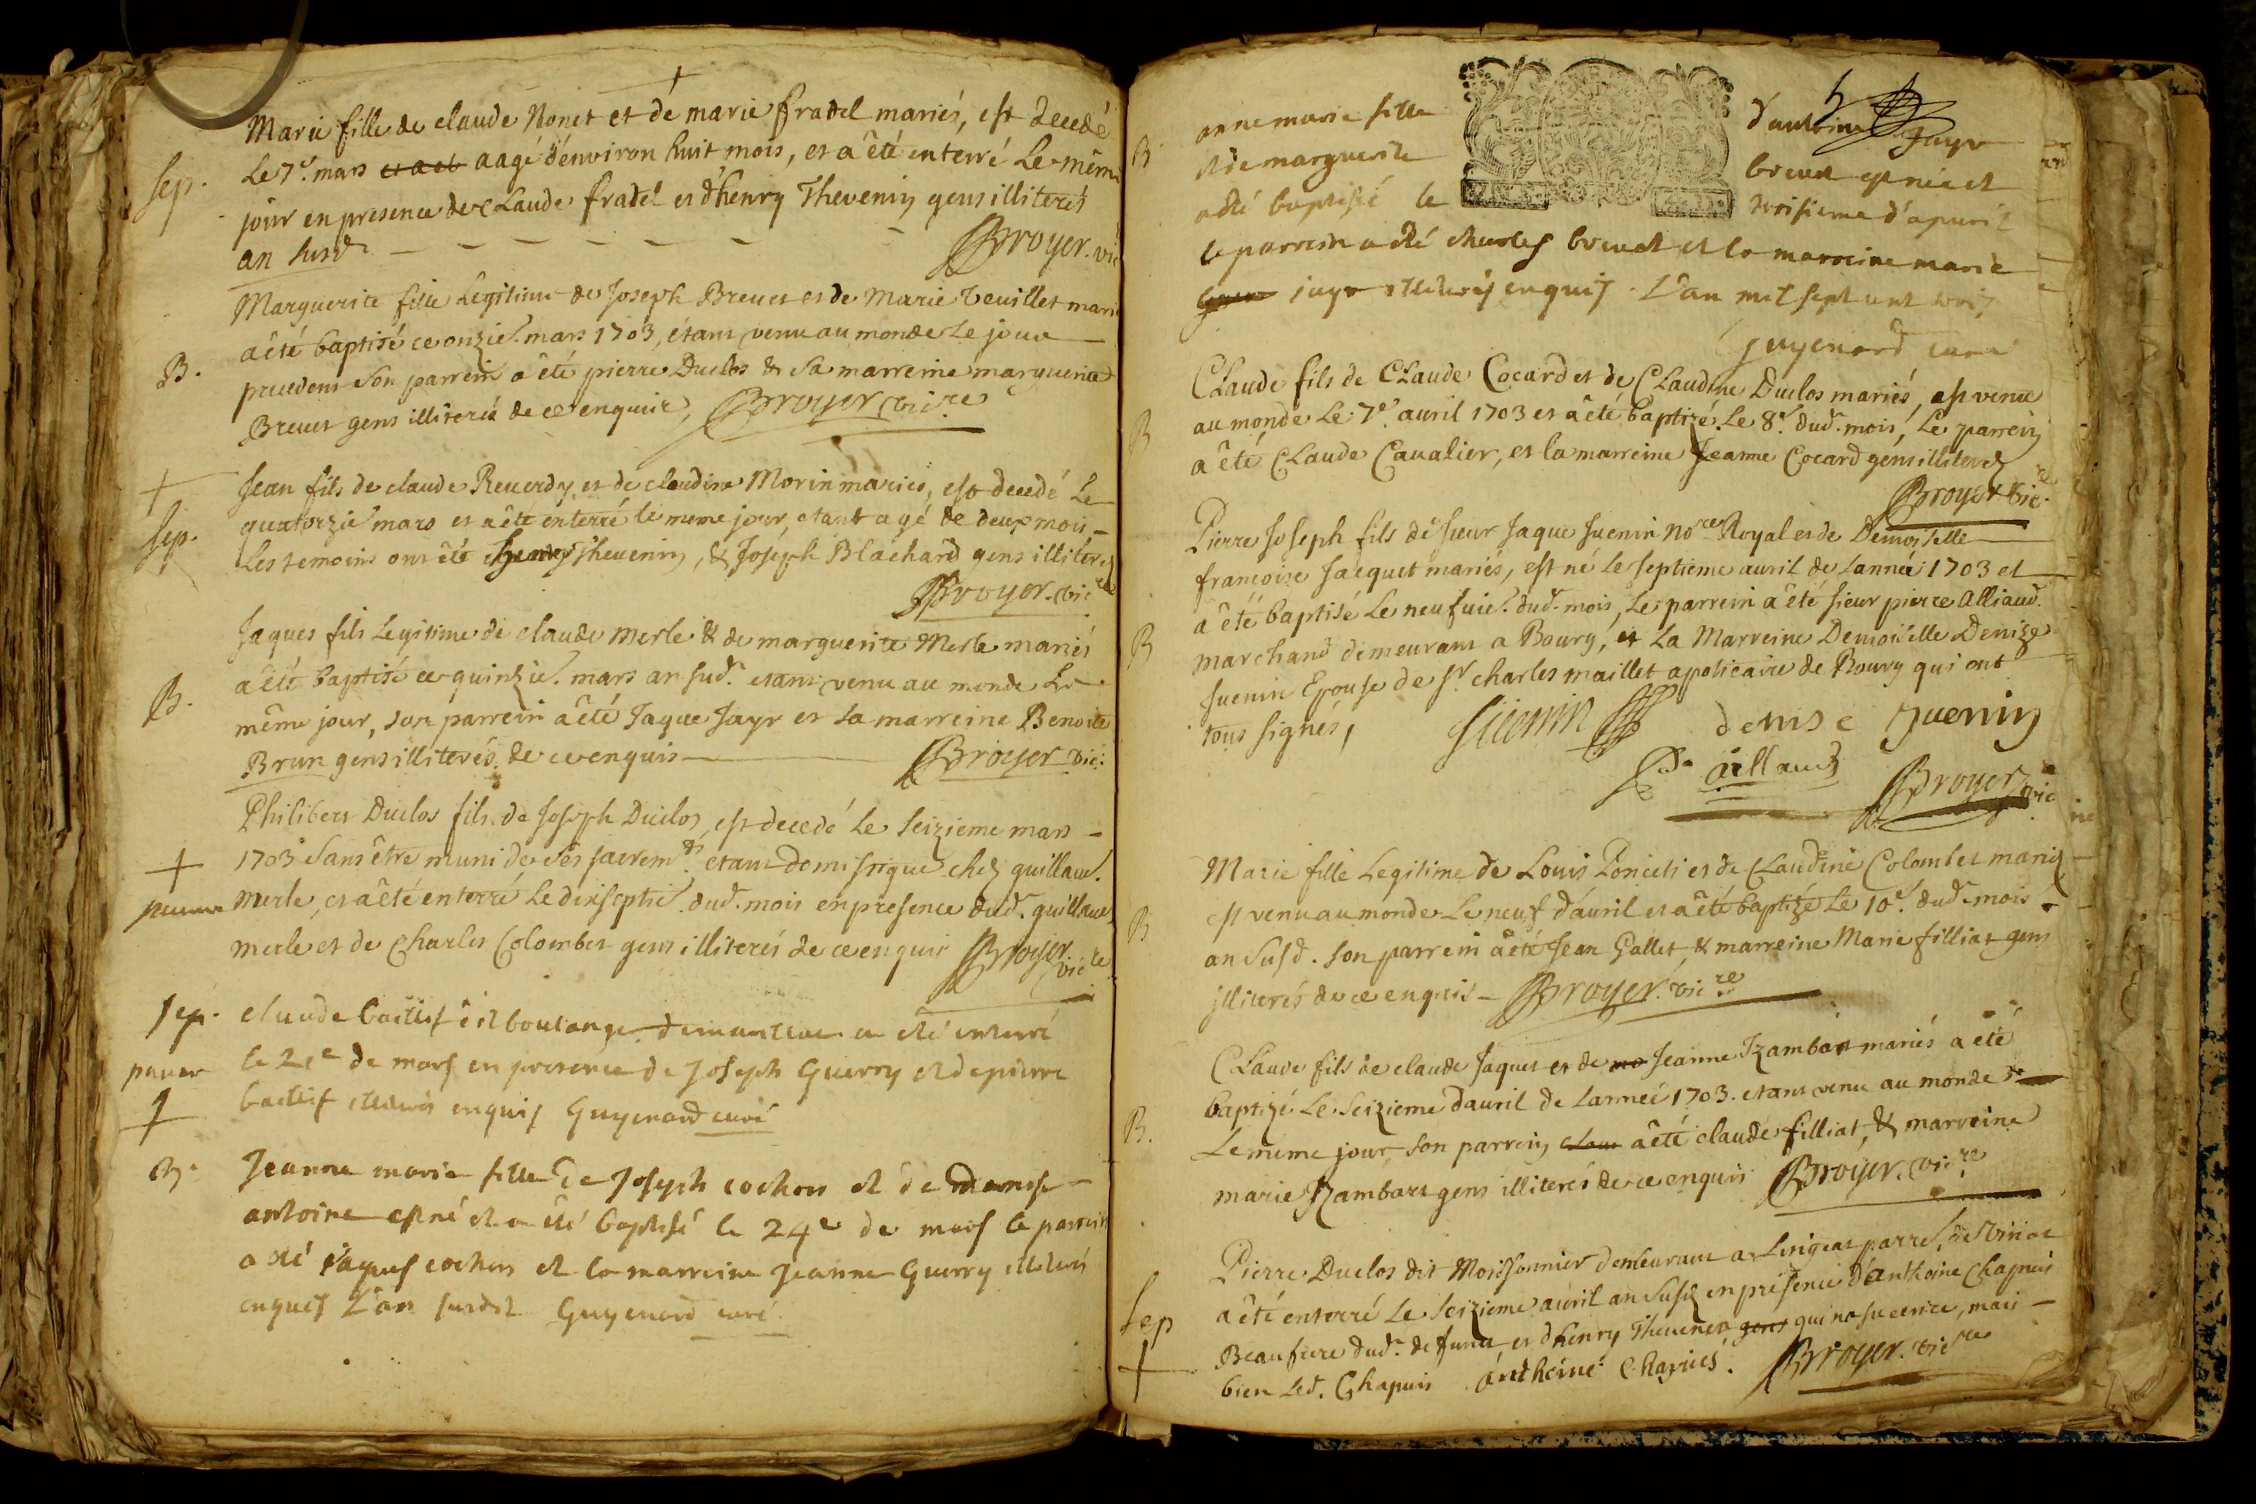 Marie fille de claude Nonet et de marie fradel mariés, est decedé
Sep.
Le 7e. mars aagé d'environ huit mois, et a êté enterré Le même
jour en presence de cLaude fradel et d'henry Thevenin gens illiterés
an susd.
Broyer. vic
Marguerite fille Légitime de Joseph Breuet et de Marie Teuillet mari
a êté baptisé ce onzie. mars 1703, étant venu au monde Le jour
B.
precedent son parrein a êté pierre Duclos & sa marreine marguerite
Breuet gens illiterés de ce enquis, Broyer vicre
Jean fils de claude Reuerdy et de claudine Morin mariés, est decedé Le
Sep.
quatorzie mars et a êté enterré le meme jour, etant agé de deux mois
Les temoins ont êté henry Theuenin, & Joseph Blachard gens illiterés
Broyer. vicre
Jaques fils Legitime de claude Merle & de marguerite Merle mariés
a êté baptisé ce quinzie. mars an sud. etant venu au monde Le
B.
même jour, son parrein a êté Jaque Jayr et sa marreine Benoite
Brun gens illiterés de ce enquis Broyer vic.
Philibert Duclos fils de Joseph Duclos, est decedé Le seizieme mars
1703 sans être muni de ses sacremts. etant domistique chez guillau.
Merle, et a êté enterré Le dixseptie. dud. mois en presence dud. guillaue
merle et de Charles Colombet gens illiterés de ce enquis Broyer vicre
Sep.
claude boulange a eté enterré
pauvre
le 21e de mars en presence de Joseph Guerry et de pierre
enquis Guyenard curé
B.
Jeanne marie fille de Joseph cochon et de
antoine est né et a eté baptisé le 24e de mars le parrein
a eté Jaques cochon et la marreine Jeanne Guerry illiterés
enquis L'an susdit Guyenard curé
B
anne marie fille d'antoine Jayr
et de marguerite breuet est née et
a eté baptisé le troisieme d'apuril
le parrein a eté charles breuet et la marreine marie
jayr illiterés enquis. L'an mil sept cent trois
Guyenard curé
CLaude fils de CLaude Cocard et de CLaudine Duclos mariés, est venu
B
au monde Le 7e. auril 1703 et a êté baptizé Le 8e. dud. mois, Le parrein
a êté CLaude Caualier, et la marreine Jeanne Cocard gens illiterés
Broyer vicre
Pierre Joseph fils de sieur Jaque Juenin Nore Royal et de Demoiselle
francoise Jacquet mariés, est né le septieme auril de Lannée 1703 et
a êté baptisé Le neufuie. dud. mois, Le parrein a êté sieur pierre Alliaud
B
marchand demeurant a Bourg, et La Marreine Demoiselle Denize
Juenin Epouse de Sr. charles maillet apoticaire de Bourg qui ont
tous signés, Juenin denise Juenin
aillaud Broyer vic
Marie fille Legitime de Louis Ponceti et de CLaudine Colombet mariés
B
est venu au monde Le neuf d'auril et a êté baptizé Le 10e. dud. mois
an susd. son parrein a êté Jean Gallet, & marreine Marie filliat gens
illiterés de ce enquis Broyer. vicre
CLaude fils de claude Jaquet et de Jeanne Rambart mariés a êté
baptizé Le seizieme d'auril de Lannée 1703. etant venu au monde
B.
Le meme jour, son parrein a êté claude filliat, & marreine
marie Rambart gens illiterés de ce enquis Broyer. vicre
Pierre Duclos dit Moissonnier demeurant a Lingeat
Sep
a êté enterré Le seizieme auril an susd. en presence d'anthoine Chapuis
Beaufrere dud. defunct, et d'henry Theuenin gens qui na su ecrire, mais
bien Led. Chapuis anthoine Chapuis. Broyer. vicre